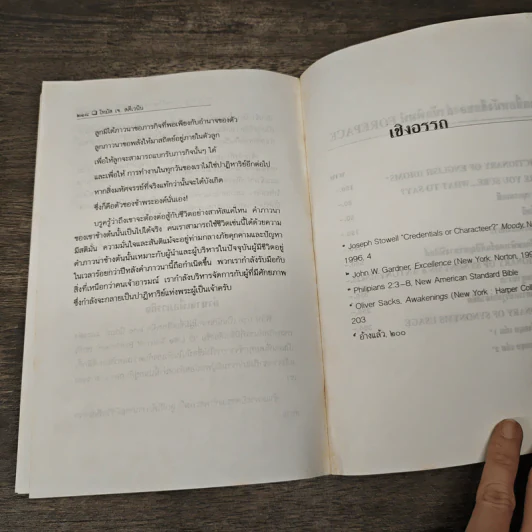 ๒๑๘ ❏ โทมัส เจ. สตีเวนิน
ลูกมิได้ภาวนาขอภารกิจที่พอเพียงกับอำนาจของตัว
ลูกภาวนาขอพลังให้มาสถิตย์อยู่ภายในตัวลูก
เพื่อให้ลูกจะสามารถแบกรับภารกิจนั้นๆ ได้
และเพื่อให้ การทำงานในทุกวันของเราไม่ใช่ปาฏิหาริย์อีกต่อไป
หากสิ่งมหัศจรรย์ที่จริงแท้กว่านั้นจะได้บังเกิด
ซึ่งก็คือตัวของข้าพระองค์นั่นเอง!
บรูครู้ว่าถึงเขาจะต้องต่อสู้กับชีวิตอย่างสาหัสแค่ไหน คำภาวนา
ของเขาข้างต้นนั้นเป็นไปได้จริง คนเราสามารถใช้ชีวิตเช่นนี้ได้ด้วยความ
มีสติมั่น ความมั่นใจและสันติแม้จะอยู่ท่ามกลางภัยคุกคามและปัญหา
คำภาวนาข้างต้นนั้นเหมาะกับผู้นำและผู้บริหารในปัจจุบันผู้มีชีวิตอยู่
ในเวลาร้อยกว่าปีหลังคำภาวนานี้ถือกำเนิดขึ้น พวกเรากำลังรับมือกับ
สิ่งที่เหนือกว่าคนเจ้าอารมณ์ เรากำลังบริหารจัดการกับผู้ที่มีศักยภาพ
ซึ่งกำลังจะกลายเป็นปาฏิหาริย์แห่งพระผู้เป็นเจ้าครับ
เชิงอรรถ
Joseph Stowell "Credentials or Character?" Moody,
1996, 4
John W. Gardner, Excellence (New York: Norton,
Philipians 2:3-8, New American Standard Bible
Oliver Sacks, Awakenings (New York : Harper
203
อ้างแล้ว, ๒๐๐